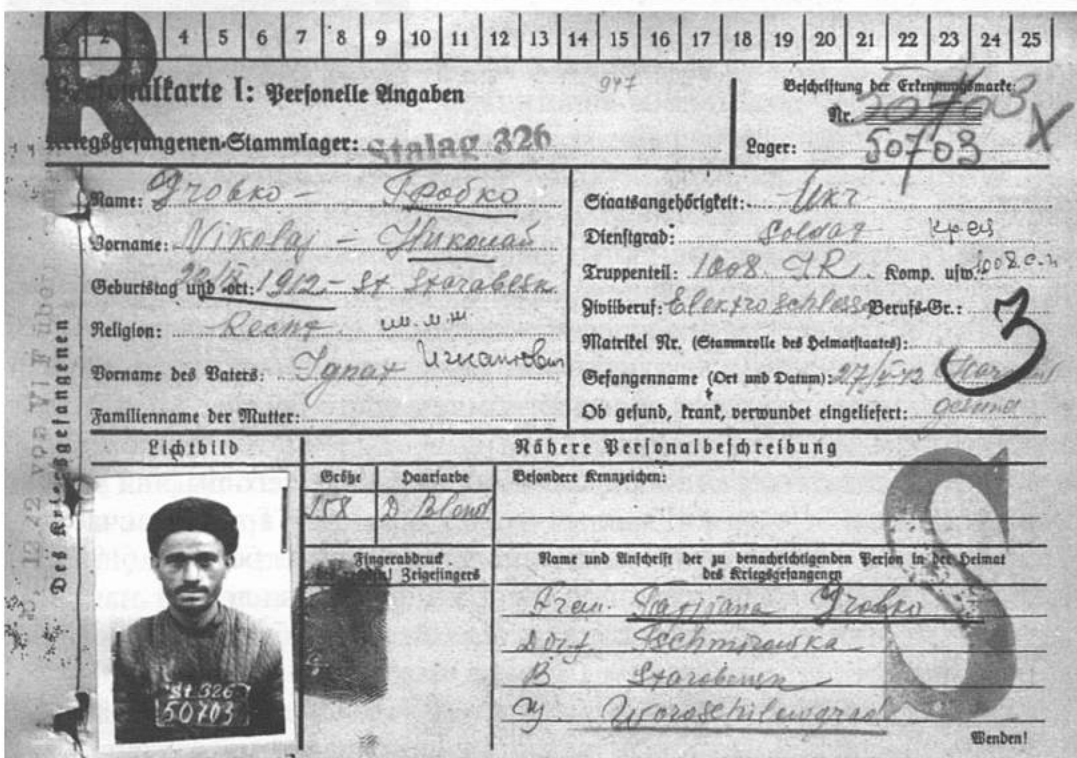 R
2 4 5 6 7 8 9 10 11 12 13 14 15 16 17 18 19 20 21 22 23 24 25
Personalkarte I: Personelle Angaben
947
Beschriftung der Erkennungsmarke
Nr. 50703 X
Kriegsgefangenen-Stammlager: Stalag 326
Lager: 50703
Name: Grobko - Гробко
Vorname: Nikolaj - Николай
Geburtstag und -ort: 1912 - St Starobelsk
Religion:
Vorname des Vaters: Ignat Игнатович
Familienname der Mutter:
Staatsangehörigkeit: Ukr
Dienstgrad: Soldat
Truppenteil: 1008. I.R. Komp. usw.: 1008 с.п
Zivilberuf: Elektroschlosser Berufs-Gr.: 3
Matrikel Nr. (Stammrolle des Heimatstaates):
Gefangenname (Ort und Datum):
Ob gesund, krank, verwundet eingeliefert: gesund
Des Kriegsgefangenen
Lichtbild
Nähere Personalbeschreibung
Größe Haarfarbe Besondere Kennzeichen:
168 D. Blond
Fingerabdruck
des rechten! Zeigefingers
Name und Anschrift der zu benachrichtigenden Person in der Heimat
des Kriegsgefangenen
Frau. Tatjana Grobko
Dorf
R Starobelsk
Woroschilowgrad
St 326
50703
S
Wenden!